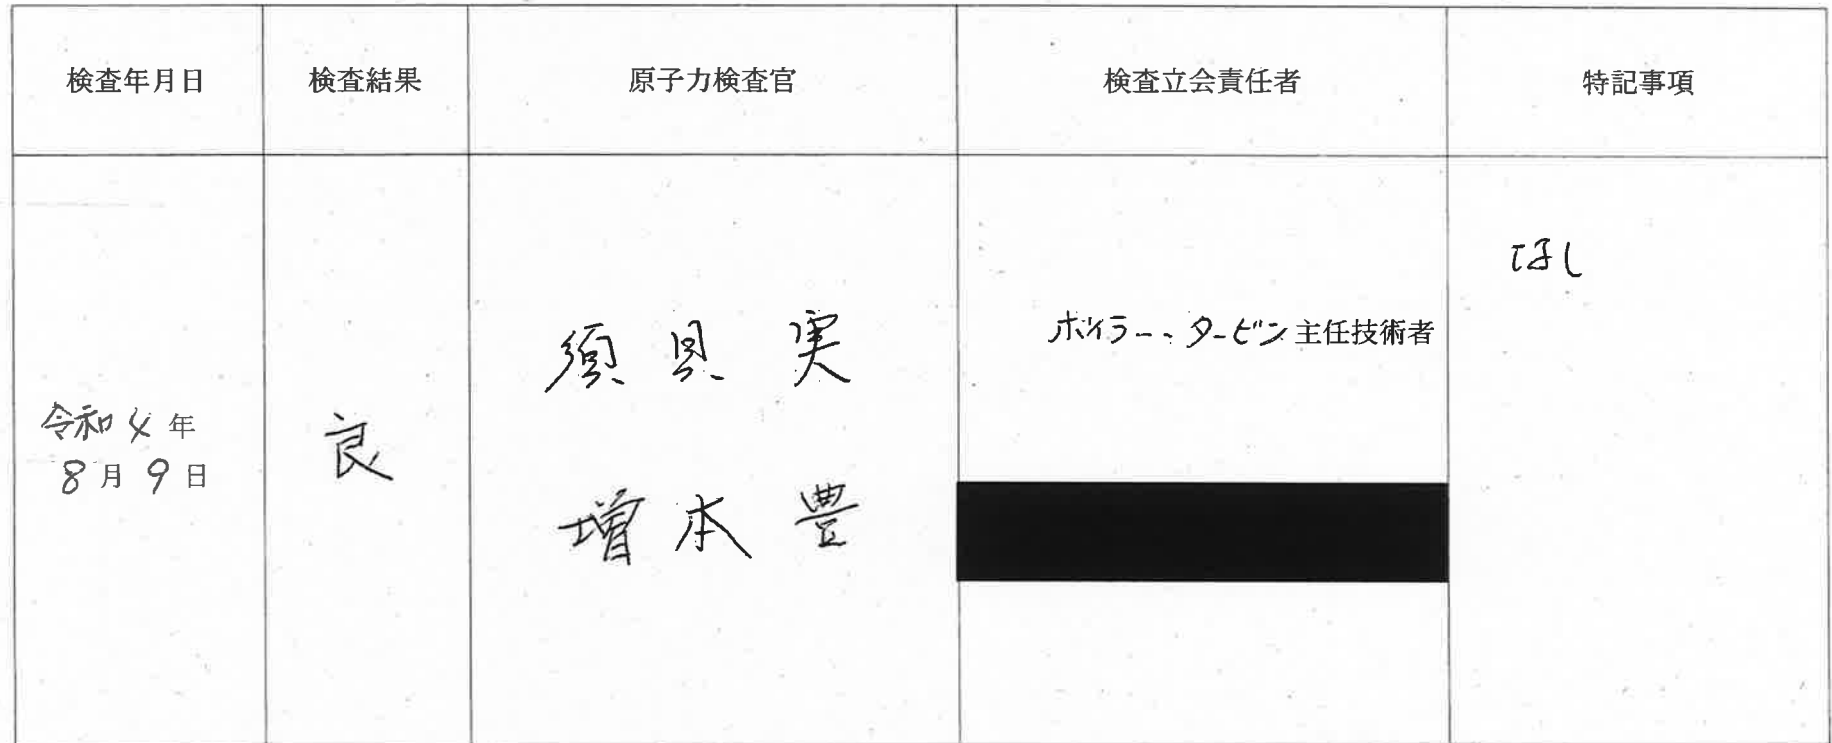 検査年月日
検査結果
原子力検査官
検査立会責任者
特記事項
令和4年
8月9日
良
須貝 実
増本 豊
ボイラー、タービン主任技術者
なし